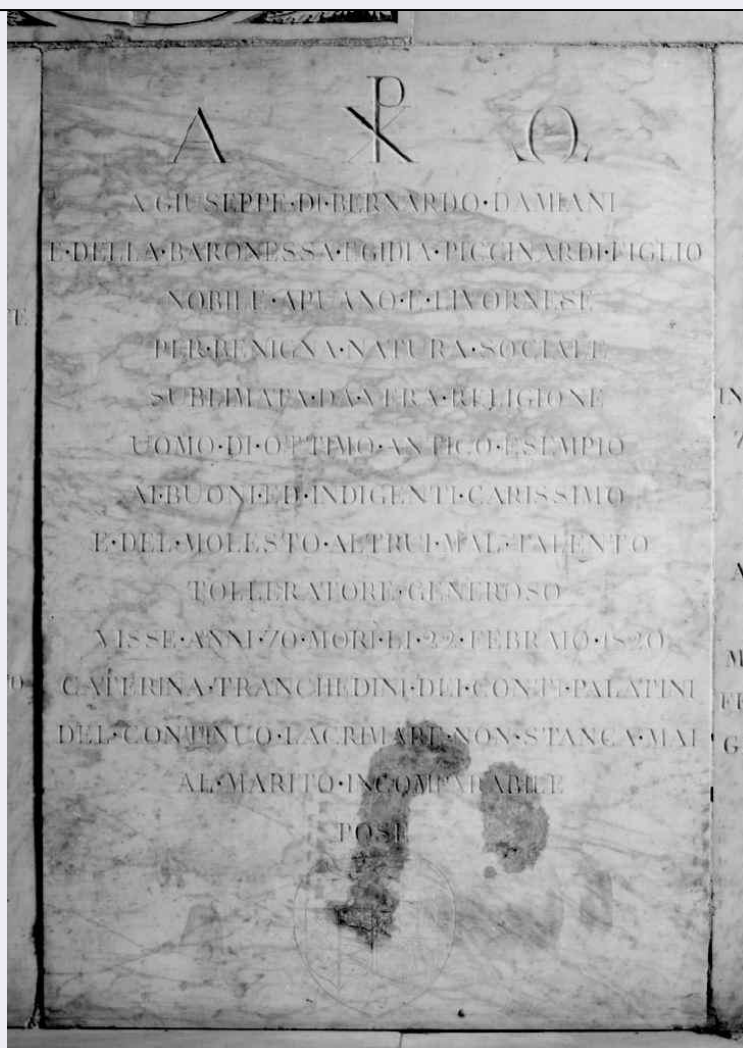 Α ☧ Ω
A·GIUSEPPE·DI·BERNARDO·DAMIANI
E·DELLA·BARONESSA·EGIDIA·PICCINARDI·FIGLIO
NOBILE·APUANO·E·LIVORNESE
PER·BENIGNA·NATURA·SOCIALE
SUBLIMATA·DA·VERA·RELIGIONE
UOMO·DI·OTTIMO·ANTICO·ESEMPIO
AI·BUONI·ED·INDIGENTI·CARISSIMO
E·DEL·MOLESTO·ALTRUI·MAL·TALENTO
TOLLERATORE·GENEROSO
VISSE·ANNI·70·MORI·LI·22·FEBRAIO·1820
CATERINA·TRANCHEDINI·DEI·CONTI·PALATINI
DEL·CONTINUO·LACRIMARE·NON·STANCA·MAI
AL·MARITO·INCOMPARABILE
POSE